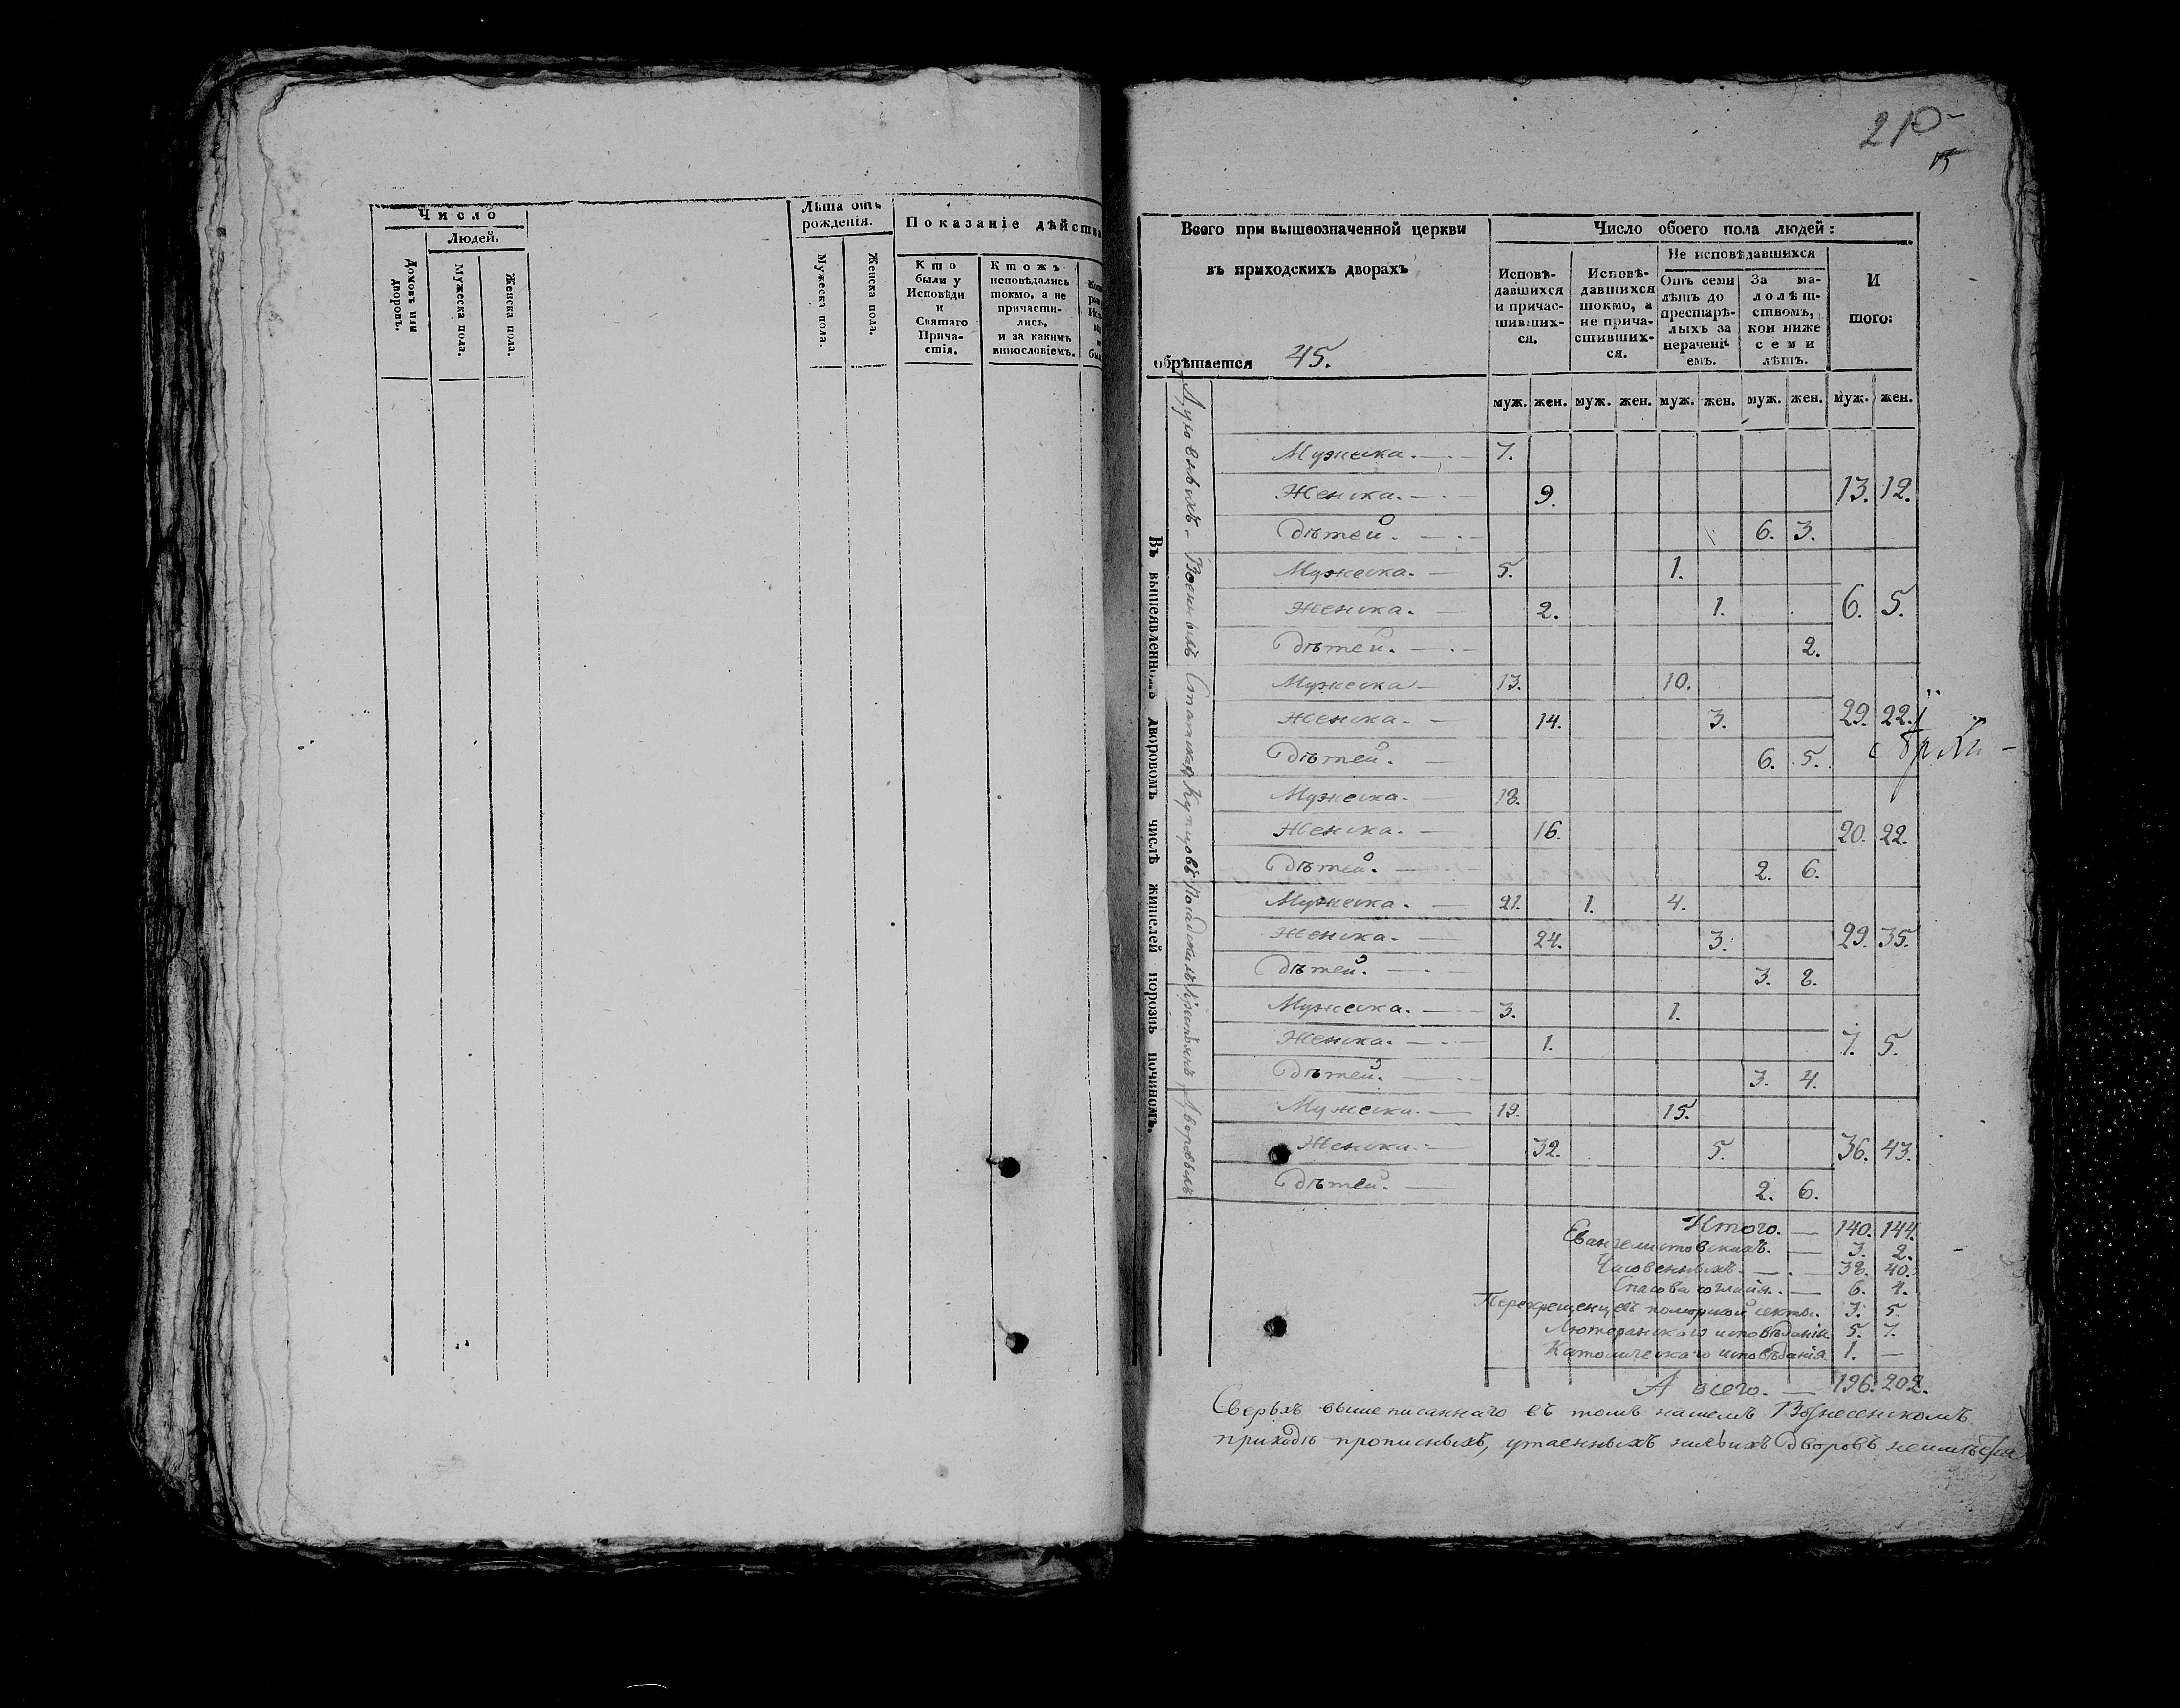 Число
Людей.
Домовъ или дворовъ.
Мужеска пола.
Женска пола.
Лѣта отъ рожденія.
Мужеска пола.
Женска пола.
Показаніе дѣйств
Кто были у Исповѣди и Святаго Прича-стія.
Ктожъ исповѣдались токмо, а не причасти-лись, и за какимъ винословіемъ.
210
Всего при вышеозначенной церкви
въ приходскихъ дворахъ
обрѣтается 45.
Число обоего пола людей:
Исповѣ-давшихся и причас-тивших-ся.
Исповѣ-давшихся токмо, а не прича-стивших-ся.
Не исповѣдавшихся
Отъ семи лѣтъ до престарѣ-лыхъ за нераченіе-емъ.
За ма-лолѣт-ствомъ, кои ниже семи лѣтъ.
И того:
муж. жен. муж. жен. муж. жен. муж. жен. муж. жен.
Въ вышеявленномъ дворовомъ числѣ жителей порознь починомъ.
Духовныхъ
Мужеска. 7.
Женска. 9. 13. 12.
Дѣтей. 6. 3.
Военныхъ
Мужеска. 5. 1.
Женска. 2. 1. 6. 5.
Дѣтей. 2.
Статскихъ
Мужеска 13. 10.
Женска. 14. 3. 29. 22.
Дѣтей. 6. 5.
Купцовъ
Мужеска. 18.
Женска. 16. 20. 22.
Дѣтей. 2. 6.
Посадскихъ
Мужеска. 21. 1. 4.
Женска. 24. 3. 29. 35.
Дѣтей. 3. 8.
Крестьянъ
Мужеска. 3. 1.
Женска. 1. 7. 5.
Дѣтей. 3. 4.
Дворовыхъ
Мужеска. 19. 15.
Женска. 32. 5. 36. 43.
Дѣтей. 2. 6.
Итого. 140. 144.
Евангелистовскихъ. 3. 2.
Часовенныхъ. 38. 40.
Спасова согласія. 6. 4.
Перекрещенцевъ поморской секты. 3. 5
Лютеранскаго исповѣданія. 5. 7.
Католическаго исповѣданія 1. —
А всего. 196. 202.
Сверьхъ вышеписаннаго въ томъ нашемъ Вознесенскомъ
приходѣ прописныхъ, утаенныхъ ничьихъ дворовъ неимѣется